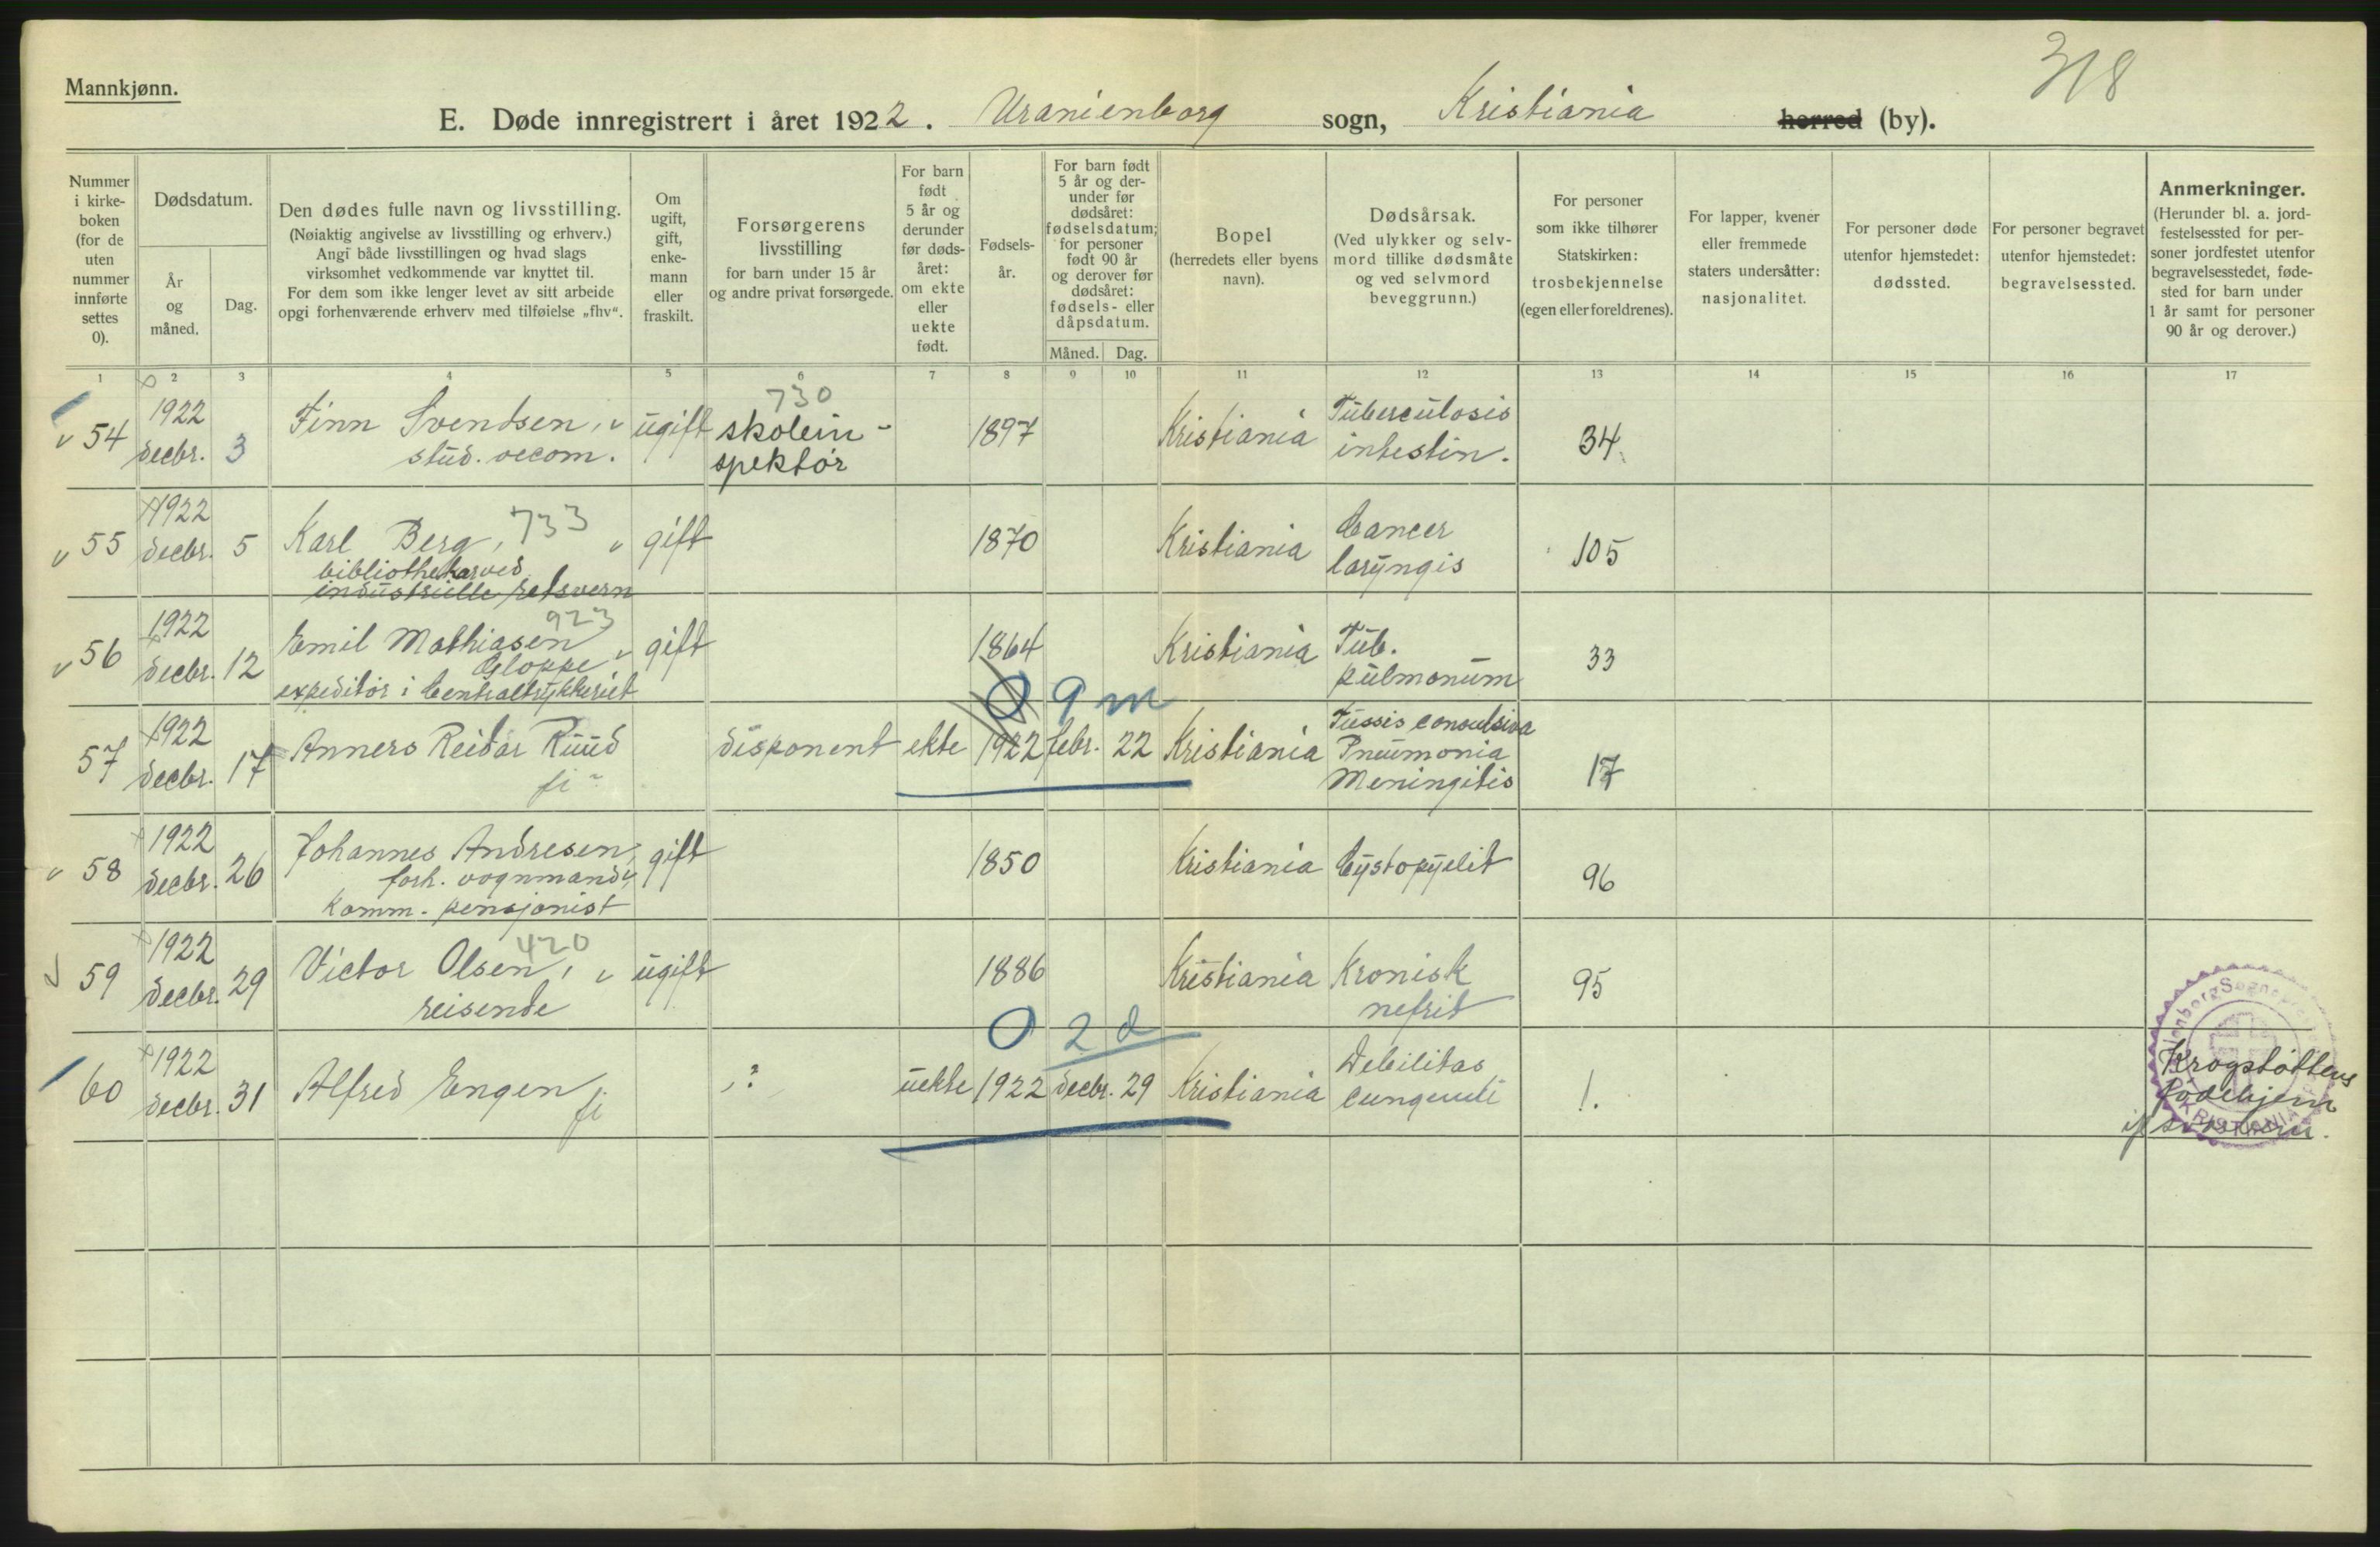 318
Mannkjønn.
E. Døde innregistrert i året 1922. Uranienborg sogn, Kristiania herred (by).
Nummer i kirke- boken (for de uten nummer innførte settes 0).
Dødsdatum.
År og måned.
Dag.
Den dødes fulle navn og livsstilling.
(Nøiaktig angivelse av livsstilling og erhverv.)
Angi både livsstillingen og hvad slags
virksomhet vedkommende var knyttet til.
For dem som ikke lenger levet av sitt arbeide
opgi forhenværende erhverv med tilføielse „fhv".
Om ugift, gift, enke- mann eller fraskilt.
Forsørgerens livsstilling
for barn under 15 år
og andre privat forsørgede.
For barn født 5 år og derunder før døds- året: om ekte eller uekte født.
Fødsels- år.
For barn født 5 år og der- under før dødsåret: fødselsdatum; for personer født 90 år og derover før dødsåret: fødsels- eller dåpsdatum.
Måned. Dag.
Bopel
(herredets eller byens navn).
Dødsårsak.
(Ved ulykker og selv- mord tillike dødsmåte og ved selvmord beveggrunn.)
For personer som ikke tilhører Statskirken: trosbekjennelse (egen eller foreldrenes).
For lapper, kvener eller fremmede staters undersåtter: nasjonalitet.
For personer døde utenfor hjemstedet: dødssted.
For personer begravet utenfor hjemstedet: begravelsessted.
Anmerkninger.
(Herunder bl. a. jord- festelsessted for per- soner jordfestet utenfor begravelsesstedet, føde- sted for barn under 1 år samt for personer 90 år og derover.)
1 2 3 4 5 6 7 8 9 10 11 12 13 14 15 16 17
54 1922 decbr. 3 Finn Svendsen, stud. oecom. ugift 730 skolein- spektør 1897 Kristiania Tuberculosis intestin. 34.
55 1922 decbr. 5 Karl Berg, 733 bibliothekar ved industrielle retsvern gift 1870 Kristiania Cancer laryngis 105
56 1922 decbr. 12 Emil Mathiasen 923 Gloppe expeditør i Centraltrykkeriet gift 1864 Kristiania Tub. pulmonum 33
0 9 m
57 1922 decbr. 17 Anners Reidar Ruud fi disponent ekte 1922 febr. 22 Kristiania Tussis convulsiva Pneumonia Meningitis 17
58 1922 decbr. 26 Johannes Andresen, forh. vognmand, Komm. pensjonist gift 1850 Kristiania Cystopyelit 96
59 1922 decbr. 29 Victor Olsen, 420 reisende ugift 1886 Kristiania Kronisk nefrit 95
0 2 d
60 1922 decbr. 31 Alfred Engen fi ? uekte 1922 decbr. 29 Kristiania Debilitas 1. Krogstøttens Fødehjem
KRISTIANIA